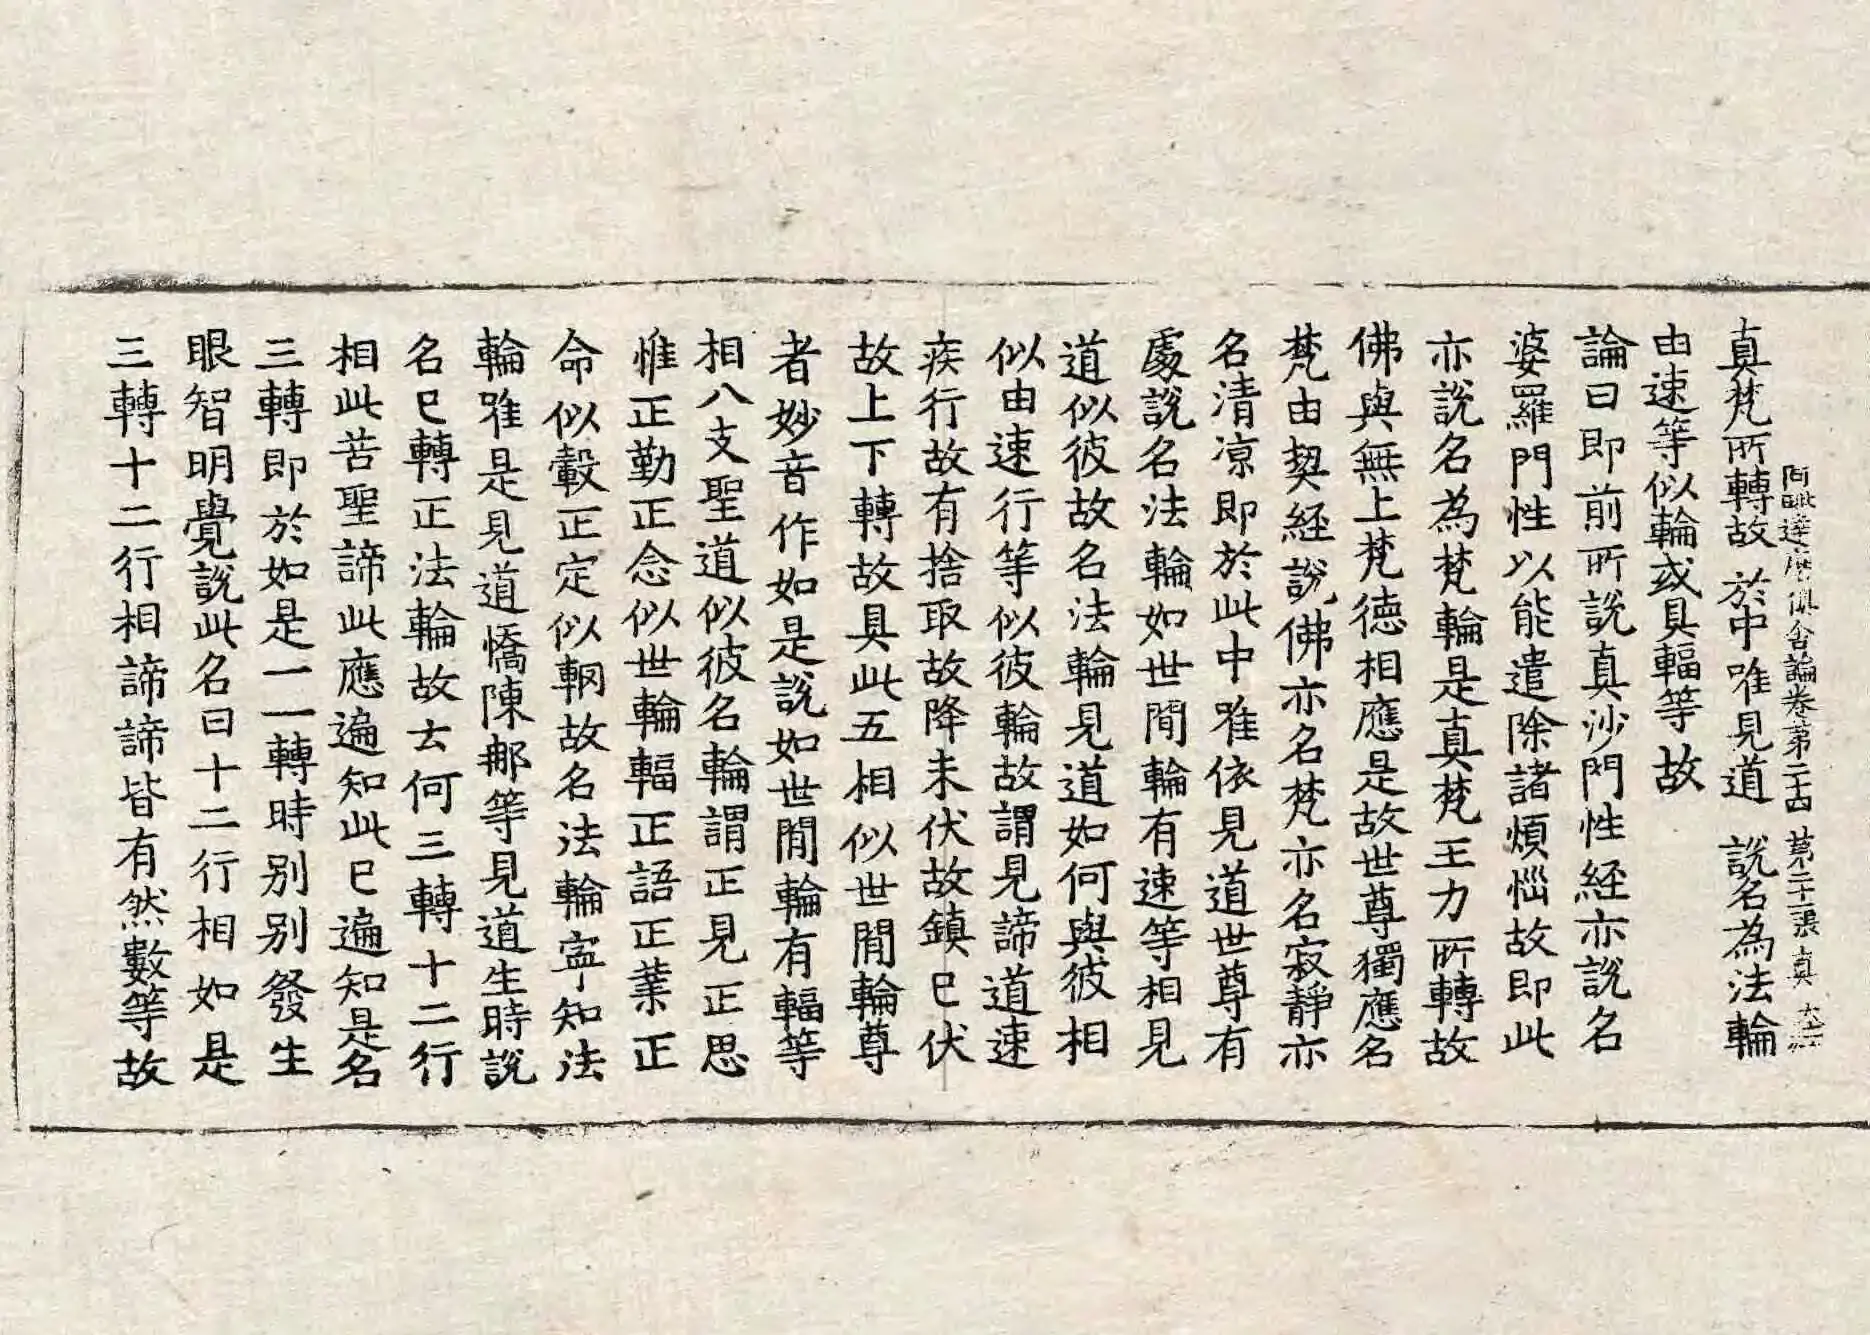 阿毗達磨俱舍論卷第二十四 第二十張 真
真梵所轉故 於中唯見道 說名為法輪
由速等似輪或具輻等故
論曰即前所說真沙門性經亦說名
婆羅門性以能遣除諸煩惱故即此
亦說名為梵輪是真梵王力所轉故
佛與無上梵德相應是故世尊獨應名
梵由契經說佛亦名梵亦名寂靜亦
名清涼即於此中唯依見道世尊有
處說名法輪如世間輪有速等相見
道似彼故名法輪見道如何與彼相
似由速行等似彼輪故謂見諦道速
疾行故有捨取故降未伏故鎮已伏
故上下轉故具此五相似世間輪尊
者妙音作如是說如世間輪有輻等
相八支聖道似彼名輪謂正見正思
惟正勤正念似世輪輻正語正業正
命似轂正定似輞故名法輪寧知法
輪唯是見道憍陳那等見道生時說
名已轉正法輪故云何三轉十二行
相此苦聖諦此應遍知此已遍知是名
三轉即於如是一一轉時別別發生
眼智明覺說此名曰十二行相如是
三轉十二行相諦諦皆有然數等故